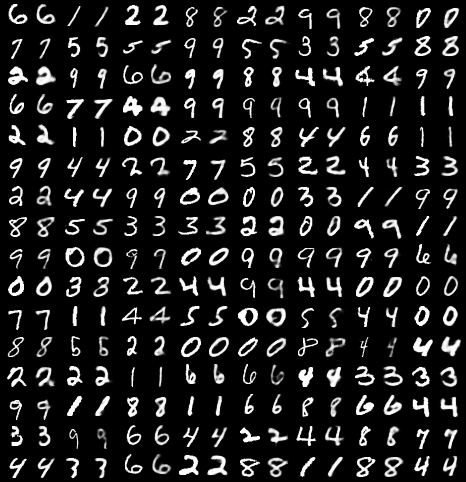 6 6 1 1 2 2 8 8 2 2 9 9 8 8 0 0
7 7 5 5 5 5 9 9 5 5 3 3 5 5 8 8
2 2 9 9 6 6 9 9 8 8 4 4 4 4 9 9
6 6 7 7 4 4 9 9 9 9 9 9 1 1 1 1
2 2 1 1 0 0 2 2 8 8 4 4 6 6 1 1
9 9 4 4 2 2 7 7 5 5 2 2 4 4 3 3
2 2 4 4 9 9 0 0 0 0 3 3 1 1 9 9
8 8 5 5 3 3 3 3 2 2 0 0 9 9 1 1
9 9 0 0 9 9 0 0 9 9 9 9 9 9 6 6
0 0 3 3 2 2 4 4 9 9 4 4 0 0 0 0
7 7 1 1 4 4 5 5 0 0 5 5 4 4 0 0
8 8 5 5 2 2 0 0 0 0 8 8 4 4 4 4
2 2 2 2 1 1 6 6 6 6 4 4 3 3 3 3
9 9 1 1 8 8 1 1 6 6 8 8 6 6 4 4
3 3 9 9 6 6 4 4 2 2 4 4 8 8 7 7
4 4 3 3 6 6 2 2 8 8 1 1 8 8 4 4